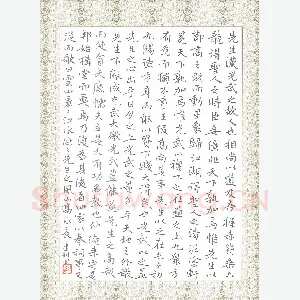 先生漢光武之故人也相尚以道及帝握赤符乘六
龍得聖人之時臣妾億兆天下孰加焉惟先生以
節高之既而動星象歸江湖得聖人之清泥塗軒
冕天下孰加焉惟光武以禮下之在蠱之上九眾方
有為而獨不事王侯高尚其事先生以之在屯之初
九陽德方亨而能以貴下賤大得民也光武以之蓋
先生之心出乎日月之上光武之量包乎天地之外微
先生不能成光武之大微光武豈能遂先生之高哉
而使貪夫廉懦夫立是大有功於名教也仲淹來守是
邦始構堂而奠焉乃復為其後者四家以奉祠事又
從而歌曰雲山蒼蒼江水泱泱先生之風山高水長